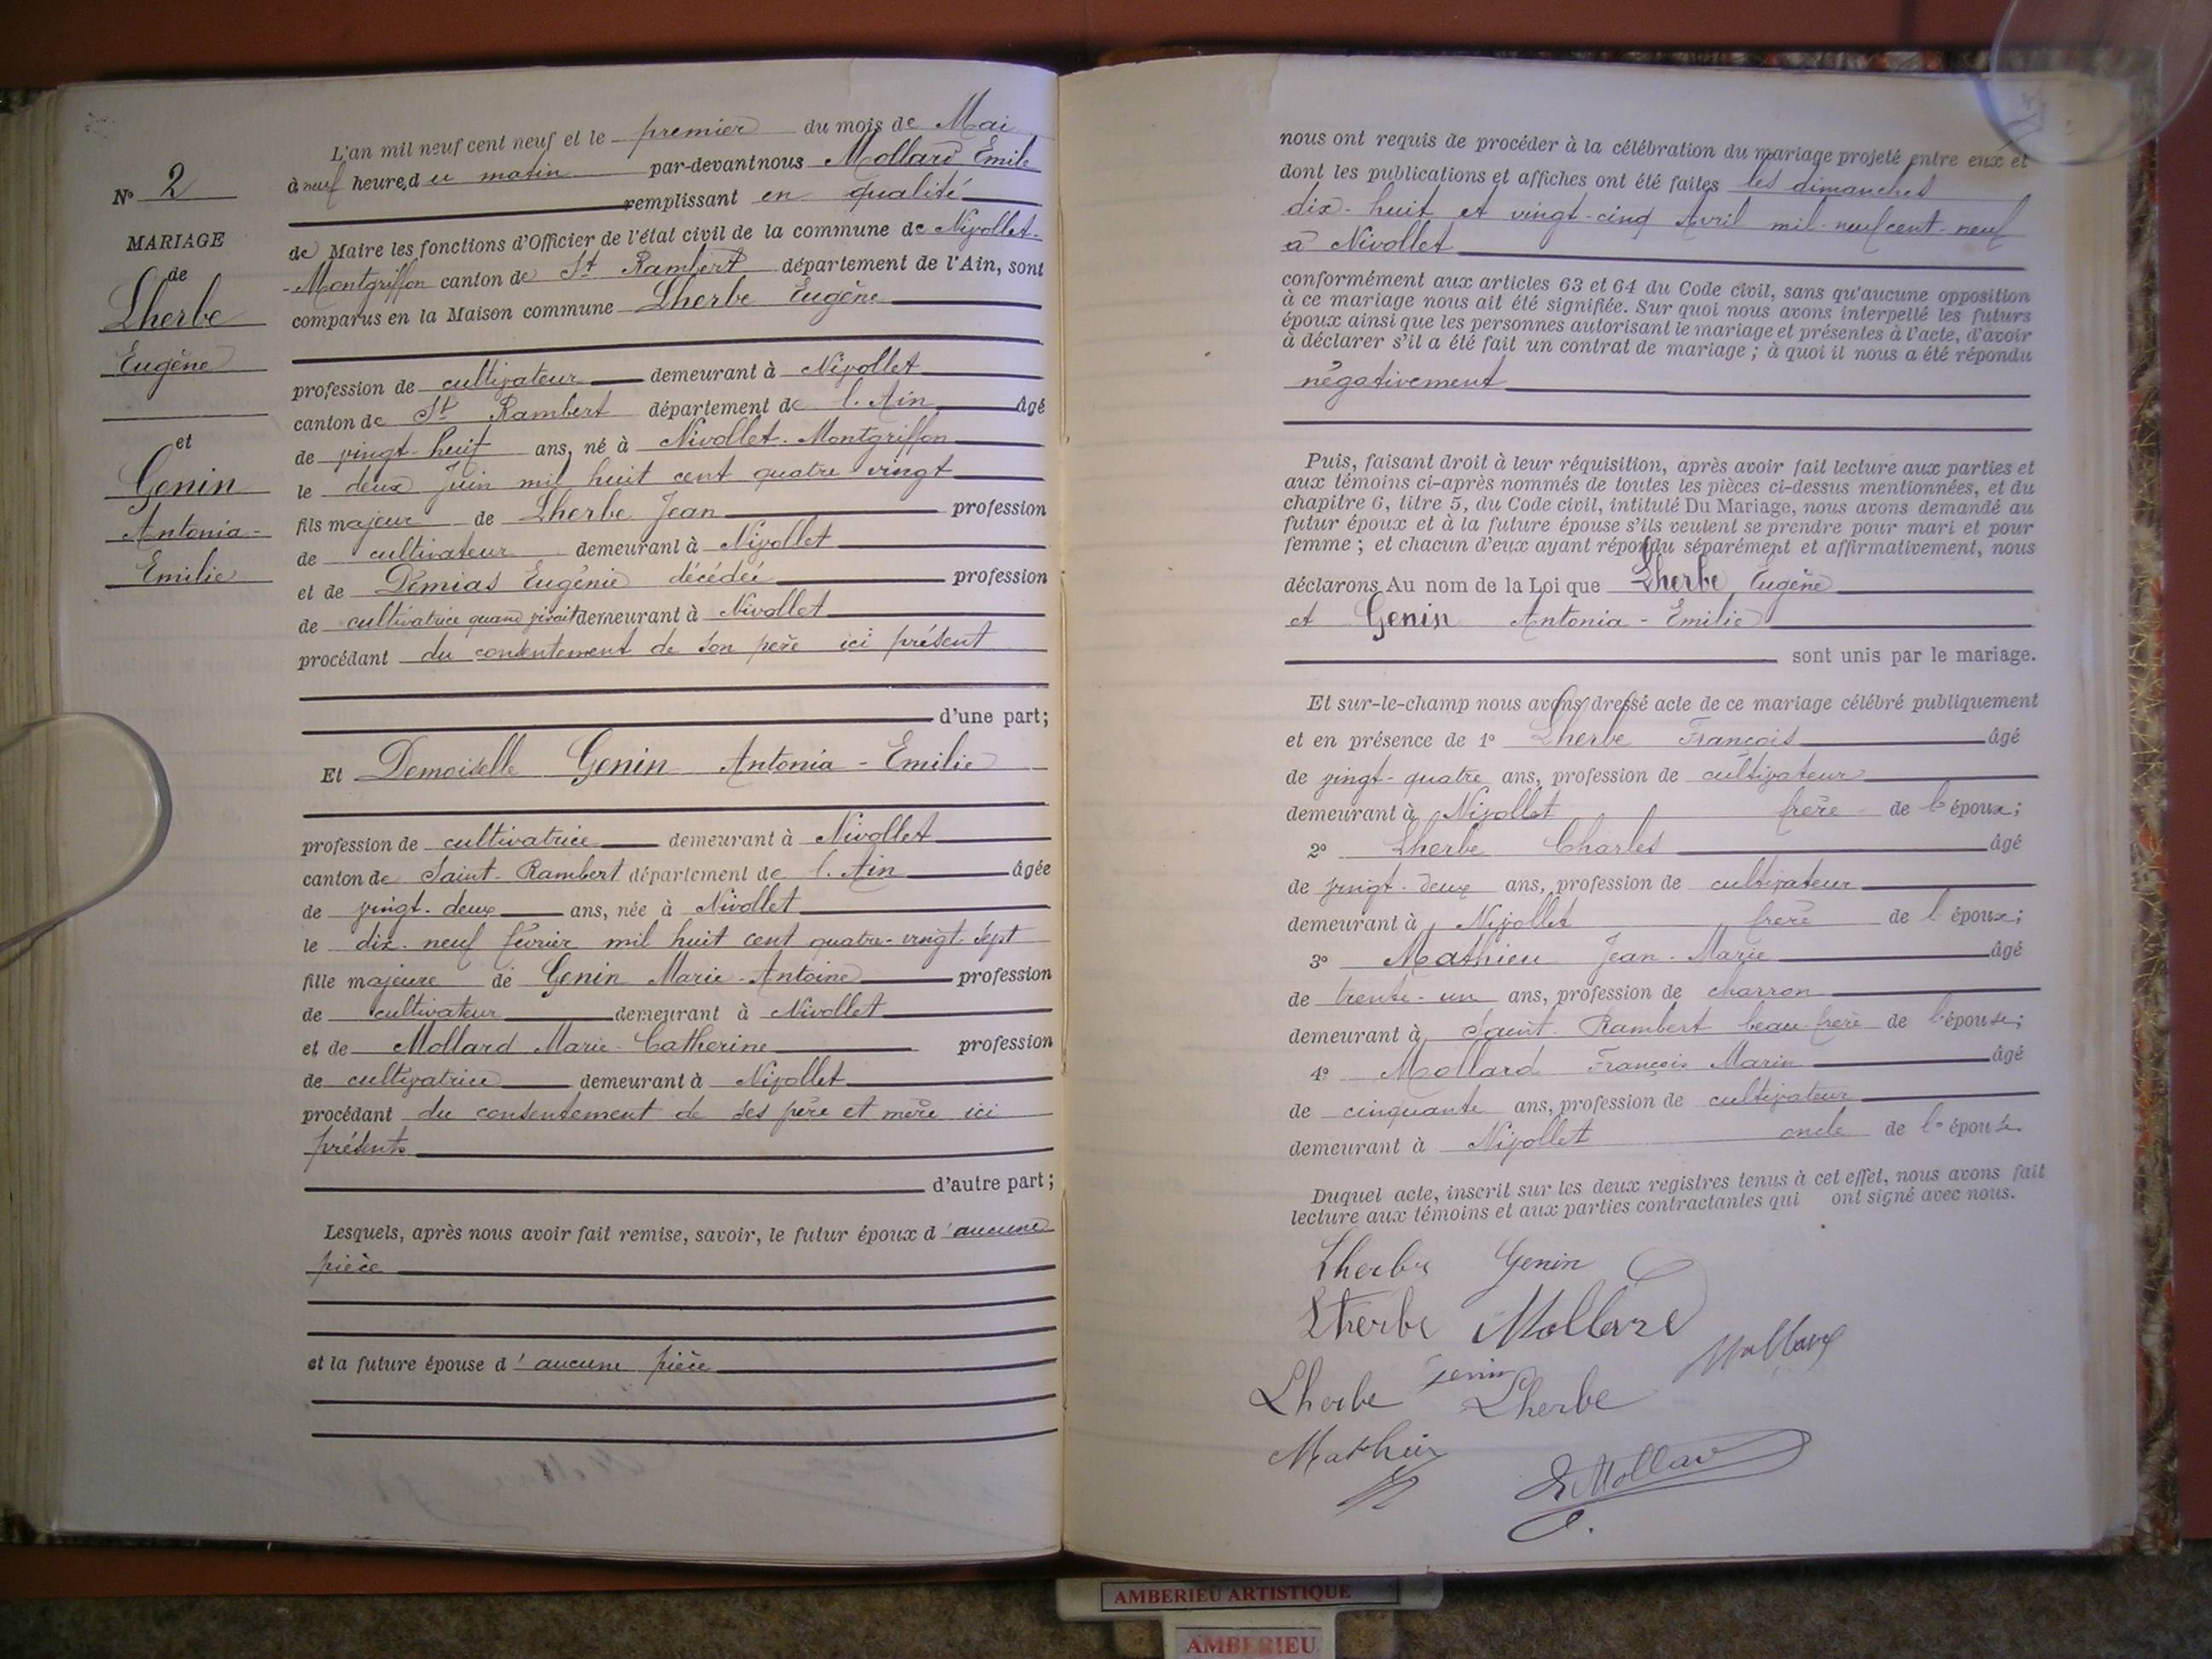 N° 2
MARIAGE
de
Lherbe
Eugène
et
Genin
Antonia-
Emilie
L'an mil neuf cent neuf et le premier du mois de Mai
à neuf heure, du matin par-devant nous Mollard Emile
remplissant en qualité
de Maire les fonctions d'Officier de l'état civil de la commune de Nivollet-
-Montgriffon canton de St Rambert département de l'Ain, sont
comparus en la Maison commune Lherbe Eugène
profession de cultivateur demeurant à Nivollet
canton de St Rambert département de l'Ain âgé
de vingt-huit ans, né à Nivollet-Montgriffon
le deux Juin mil huit cent quatre vingt
fils majeur de Lherbe Jean profession
de cultivateur demeurant à Nivollet
et de Démias Eugénie décédée profession
de cultivatrice quand vivait demeurant à Nivollet
procédant du consentement de son père ici présent
d'une part;
Et Demoiselle Genin Antonia-Emilie
profession de cultivatrice demeurant à Nivollet
canton de Saint-Rambert département de l'Ain âgée
de vingt-deux ans, née à Nivollet
le dix-neuf février mil huit cent quatre-vingt-sept
fille majeure de Genin Marie-Antoine profession
de cultivateur demeurant à Nivollet
et de Mollard Marie-Catherine profession
de cultivatrice demeurant à Nivollet
procédant du consentement de ses père et mère ici
présents
d'autre part;
Lesquels, après nous avoir fait remise, savoir, le futur époux d'aucune
pièce
et la future épouse d'aucune pièce
nous ont requis de procéder à la célébration du mariage projeté entre eux et
dont les publications et affiches ont été faites les dimanches
dix-huit et vingt-cinq Avril mil-neuf cent-neuf
à Nivollet
conformément aux articles 63 et 64 du Code civil, sans qu'aucune opposition
à ce mariage nous ait été signifiée. Sur quoi nous avons interpellé les futurs
époux ainsi que les personnes autorisant le mariage et présentes à l'acte, d'avoir
à déclarer s'il a été fait un contrat de mariage; à quoi il nous a été répondu
négativement
Puis, faisant droit à leur réquisition, après avoir fait lecture aux parties et
aux témoins ci-après nommés de toutes les pièces ci-dessus mentionnées, et du
chapitre 6, litre 5, du Code civil, intitulé Du Mariage, nous avons demandé au
futur époux et à la future épouse s'ils veulent se prendre pour mari et pour
femme; et chacun d'eux ayant répondu séparément et affirmativement, nous
déclarons Au nom de la Loi que Lherbe Eugène
et Genin Antonia-Emilie
sont unis par le mariage.
Et sur-le-champ nous avons dressé acte de ce mariage célébré publiquement
et en présence de 1° Lherbe François âgé
de vingt-quatre ans, profession de cultivateur
demeurant à Nivollet frère de l'époux;
2° Lherbe Charles âgé
de vingt-deux ans, profession de cultivateur
demeurant à Nivollet frère de l'époux;
3° Mathieu Jean-Marie âgé
de trente-un ans, profession de charron
demeurant à Saint-Rambert beau-frère de l'épouse;
4° Mollard François Marin âgé
de cinquante ans, profession de cultivateur
demeurant à Nivollet oncle de l'épouse
Duquel acte, inscrit sur les deux registres tenus à cet effet, nous avons fait
lecture aux témoins et aux parties contractantes qui ont signé avec nous.
Lherbe Genin
Lherbe Mollard
Mollard
Genin
Lherbe Lherbe
Mathieu
E Mollard
AMBERIEU ARTISTIQUE
AMBERIEU